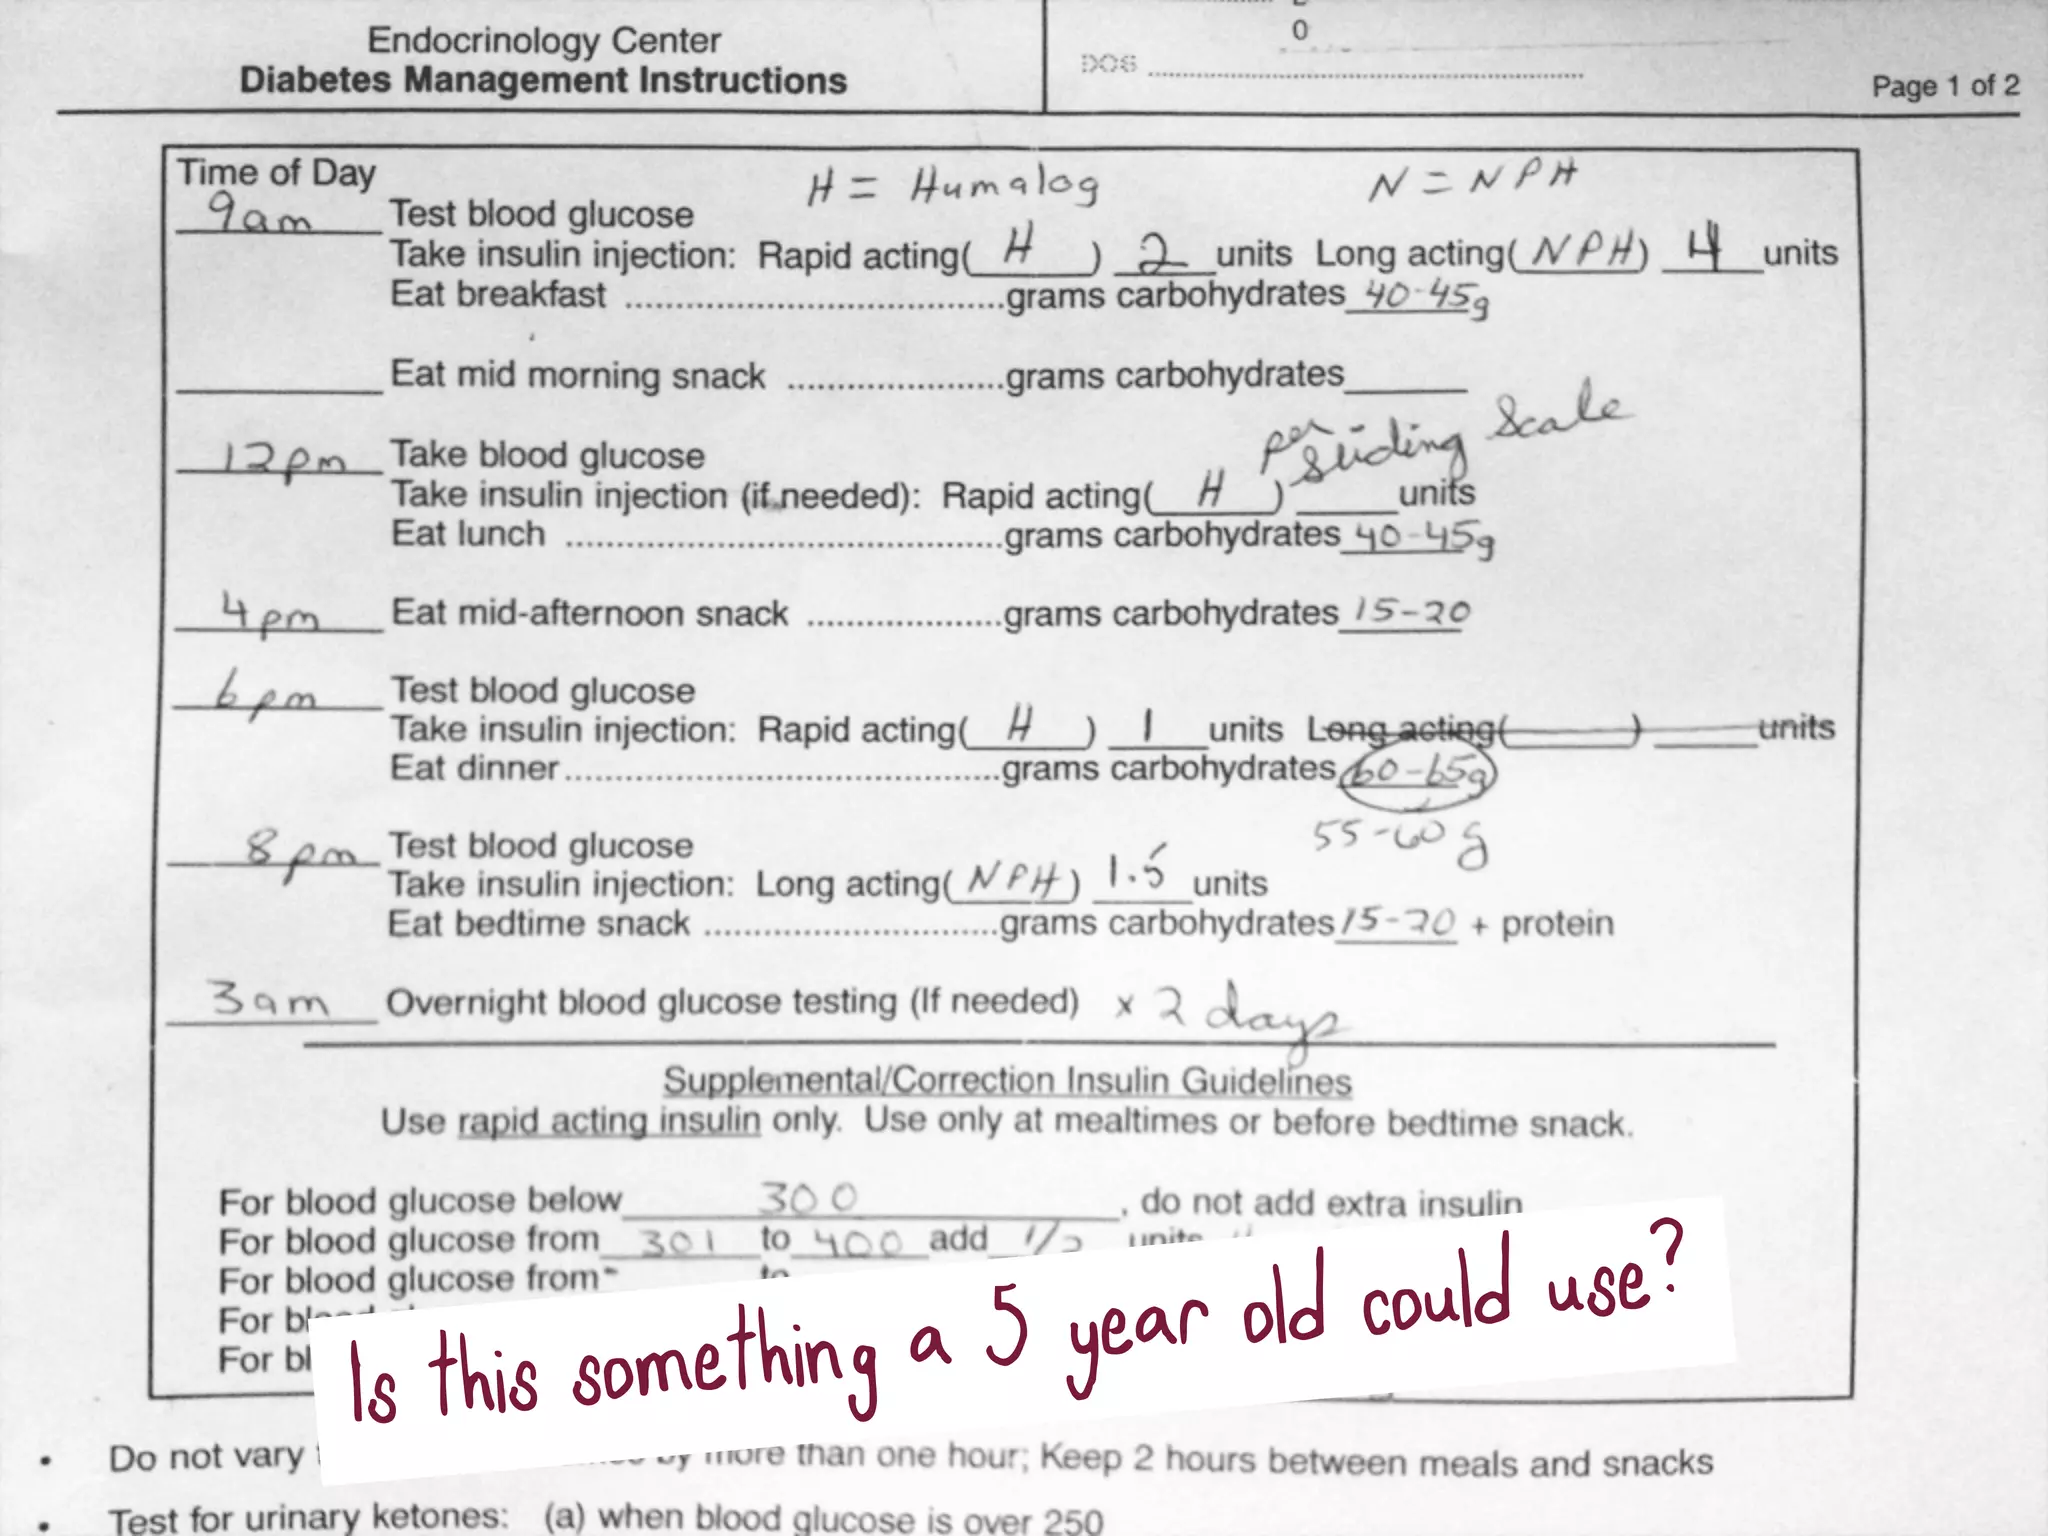 Endocrinology Center
Diabetes Management Instructions
0
DOS
Page 1 of 2
Time of Day
H = Humalog N = NPH
9am Test blood glucose
Take insulin injection: Rapid acting( H ) 2 units Long acting( NPH ) 4 units
Eat breakfast ......................................grams carbohydrates 40-45g
Eat mid morning snack ......................grams carbohydrates
per Sliding Scale
12pm Take blood glucose
Take insulin injection (if needed): Rapid acting( H ) units
Eat lunch ............................................grams carbohydrates 40-45g
4pm Eat mid-afternoon snack ....................grams carbohydrates 15-20
6pm Test blood glucose
Take insulin injection: Rapid acting( H ) 1 units Long acting( ) units
Eat dinner............................................grams carbohydrates 60-65g
55-60g
8pm Test blood glucose
Take insulin injection: Long acting( NPH ) 1.5 units
Eat bedtime snack ..............................grams carbohydrates 15-20 + protein
3am Overnight blood glucose testing (If needed) x 2 days
Supplemental/Correction Insulin Guidelines
Use rapid acting insulin only. Use only at mealtimes or before bedtime snack.
For blood glucose below 300, do not add extra insulin
For blood glucose from 301 to 400 add 1/2 units
For blood glucose from to
For
For
Is this something a 5 year old could use?
Do not vary by more than one hour; Keep 2 hours between meals and snacks
Test for urinary ketones: (a) when blood glucose is over 250